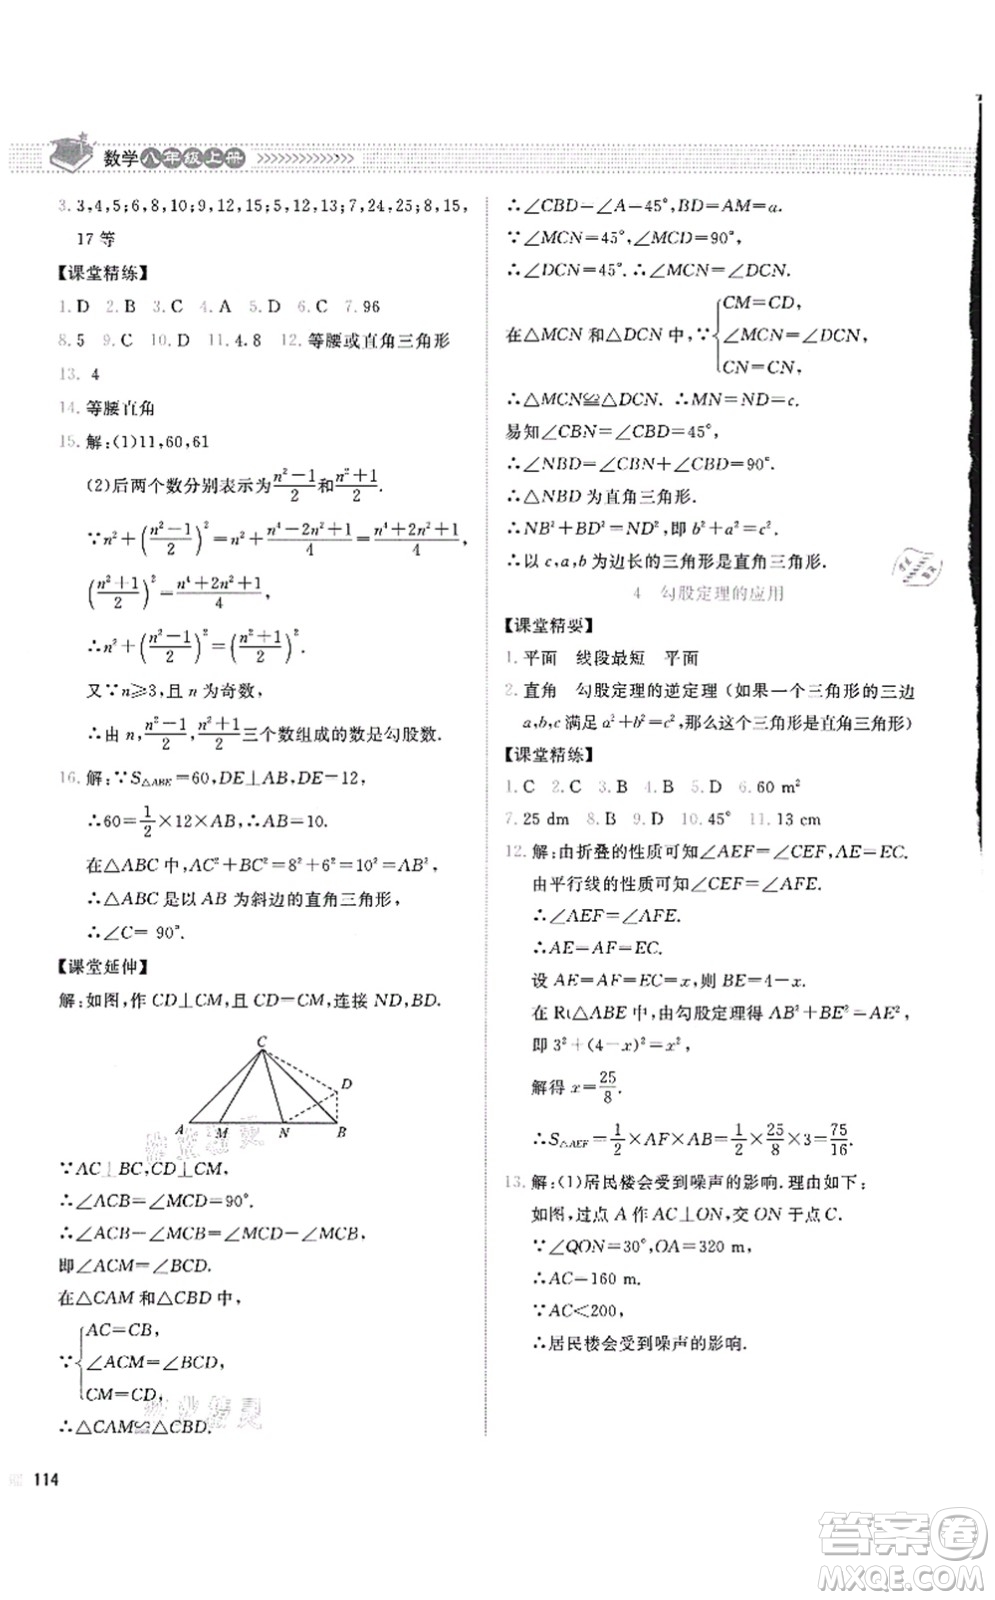 数学八年级上册
3. 3,4,5;6,8,10;9,12,15;7,24,25;8,15,
17 等
【课堂精练】
1. D 2. B 3. C 4. A 5. D 6. C 7. 96
8. 5 9. C 10. D 11. 4.8 12. 等腰或直角三角形
13. 4
14. 等腰直角
15. 解:(1)11,60,61
(2)后两个数分别表示为(n²-1)/2和(n²+1)/2.
∵n²+((n²-1)/2)²=n²+(n⁴-2n²+1)/4=(n⁴+2n²+1)/4,
((n²+1)/2)²=(n⁴+2n²+1)/4,
∴n²+((n²-1)/2)²=((n²+1)/2)².
又∵n≥3,且 n 为奇数,
∴由 n,(n²-1)/2,(n²+1)/2三个数组成的数是勾股数.
16. 解:∵S△ABE=60,DE⊥AB,DE=12,
∴60=1/2×12×AB,∴AB=10.
在△ABC 中,AC²+BC²=8²+6²=100=AB²,
∴△ABC 是以 AB 为斜边的直角三角形,
∴∠C= 90°.
【课堂延伸】
解:如图,作 CD⊥CM,且 CD=CM,连接 ND,BD.
C
D
A M N B
∵AC⊥BC,CD⊥CM,
∴∠ACB=∠MCD=90°,
∴∠ACB-∠MCB=∠MCD-∠MCB.
即∠ACM=∠BCD.
在△CAM 和△CBD 中,
∵{AC=CB,
∠ACM=∠BCD,
CM=CD,
∴△CAM≌△CBD.
114
∴∠CBD=∠A=45°,BD=AM=a.
∵∠MCN=45°,∠MCD=90°,
∴∠DCN=45°.∴∠MCN=∠DCN.
在△MCN 和△DCN 中,∵{CM=CD,
∠MCN=∠DCN,
CN=CN,
∴△MCN≌△DCN. ∴MN=ND=c.
易知∠CBN=∠CBD=45°,
∴∠NBD=∠CBN+∠CBD=90°.
∴△NBD 为直角三角形.
∴NB²+BD²=ND²,即 b²+a²=c².
∴以 c,a,b 为边长的三角形是直角三角形.
4 勾股定理的应用
【课堂精要】
1. 平面 线段最短 平面
2. 直角 勾股定理的逆定理(如果一个三角形的三边
a,b,c 满足 a²+b²=c²,那么这个三角形是直角三角形)
【课堂精练】
1. C 2. C 3. B 4. A 5. B 6. 60 m²
7. 25 dm 8. B 9. D 10. 45° 11. 13 cm
12. 解:由折叠的性质可知∠AEF=∠CEF,AE=EC.
由平行线的性质可知∠CEF=∠AFE.
∴∠AEF=∠AFE.
∴AE=AF=EC.
设 AE=AF=EC=x,则 BE=4-x.
在 Rt△ABE 中,由勾股定理得 AB²+BE²=AE²,
即 3²+(4-x)²=x²,
解得 x=25/8.
∴S△AEF=1/2×AF×AB=1/2×25/8×3=75/16
13. 解:(1)居民楼会受到噪声的影响.理由如下:
如图,过点 A 作 AC⊥ON,交 ON 于点 C.
∵∠QON=30°,OA=320 m,
∴AC=160 m.
∵AC<200,
∴居民楼会受到噪声的影响.
答案卷
MXQE.COM